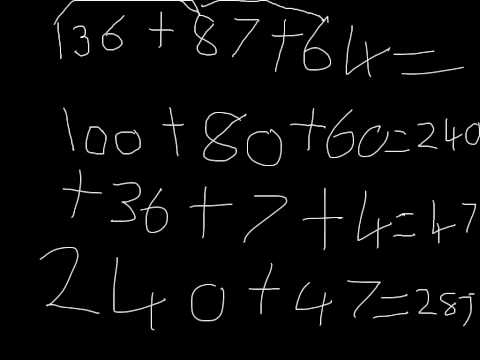 136 + 87 + 64 =
100 + 80 + 60 = 240
+ 36 + 7 + 4 = 47
240 + 47 = 287